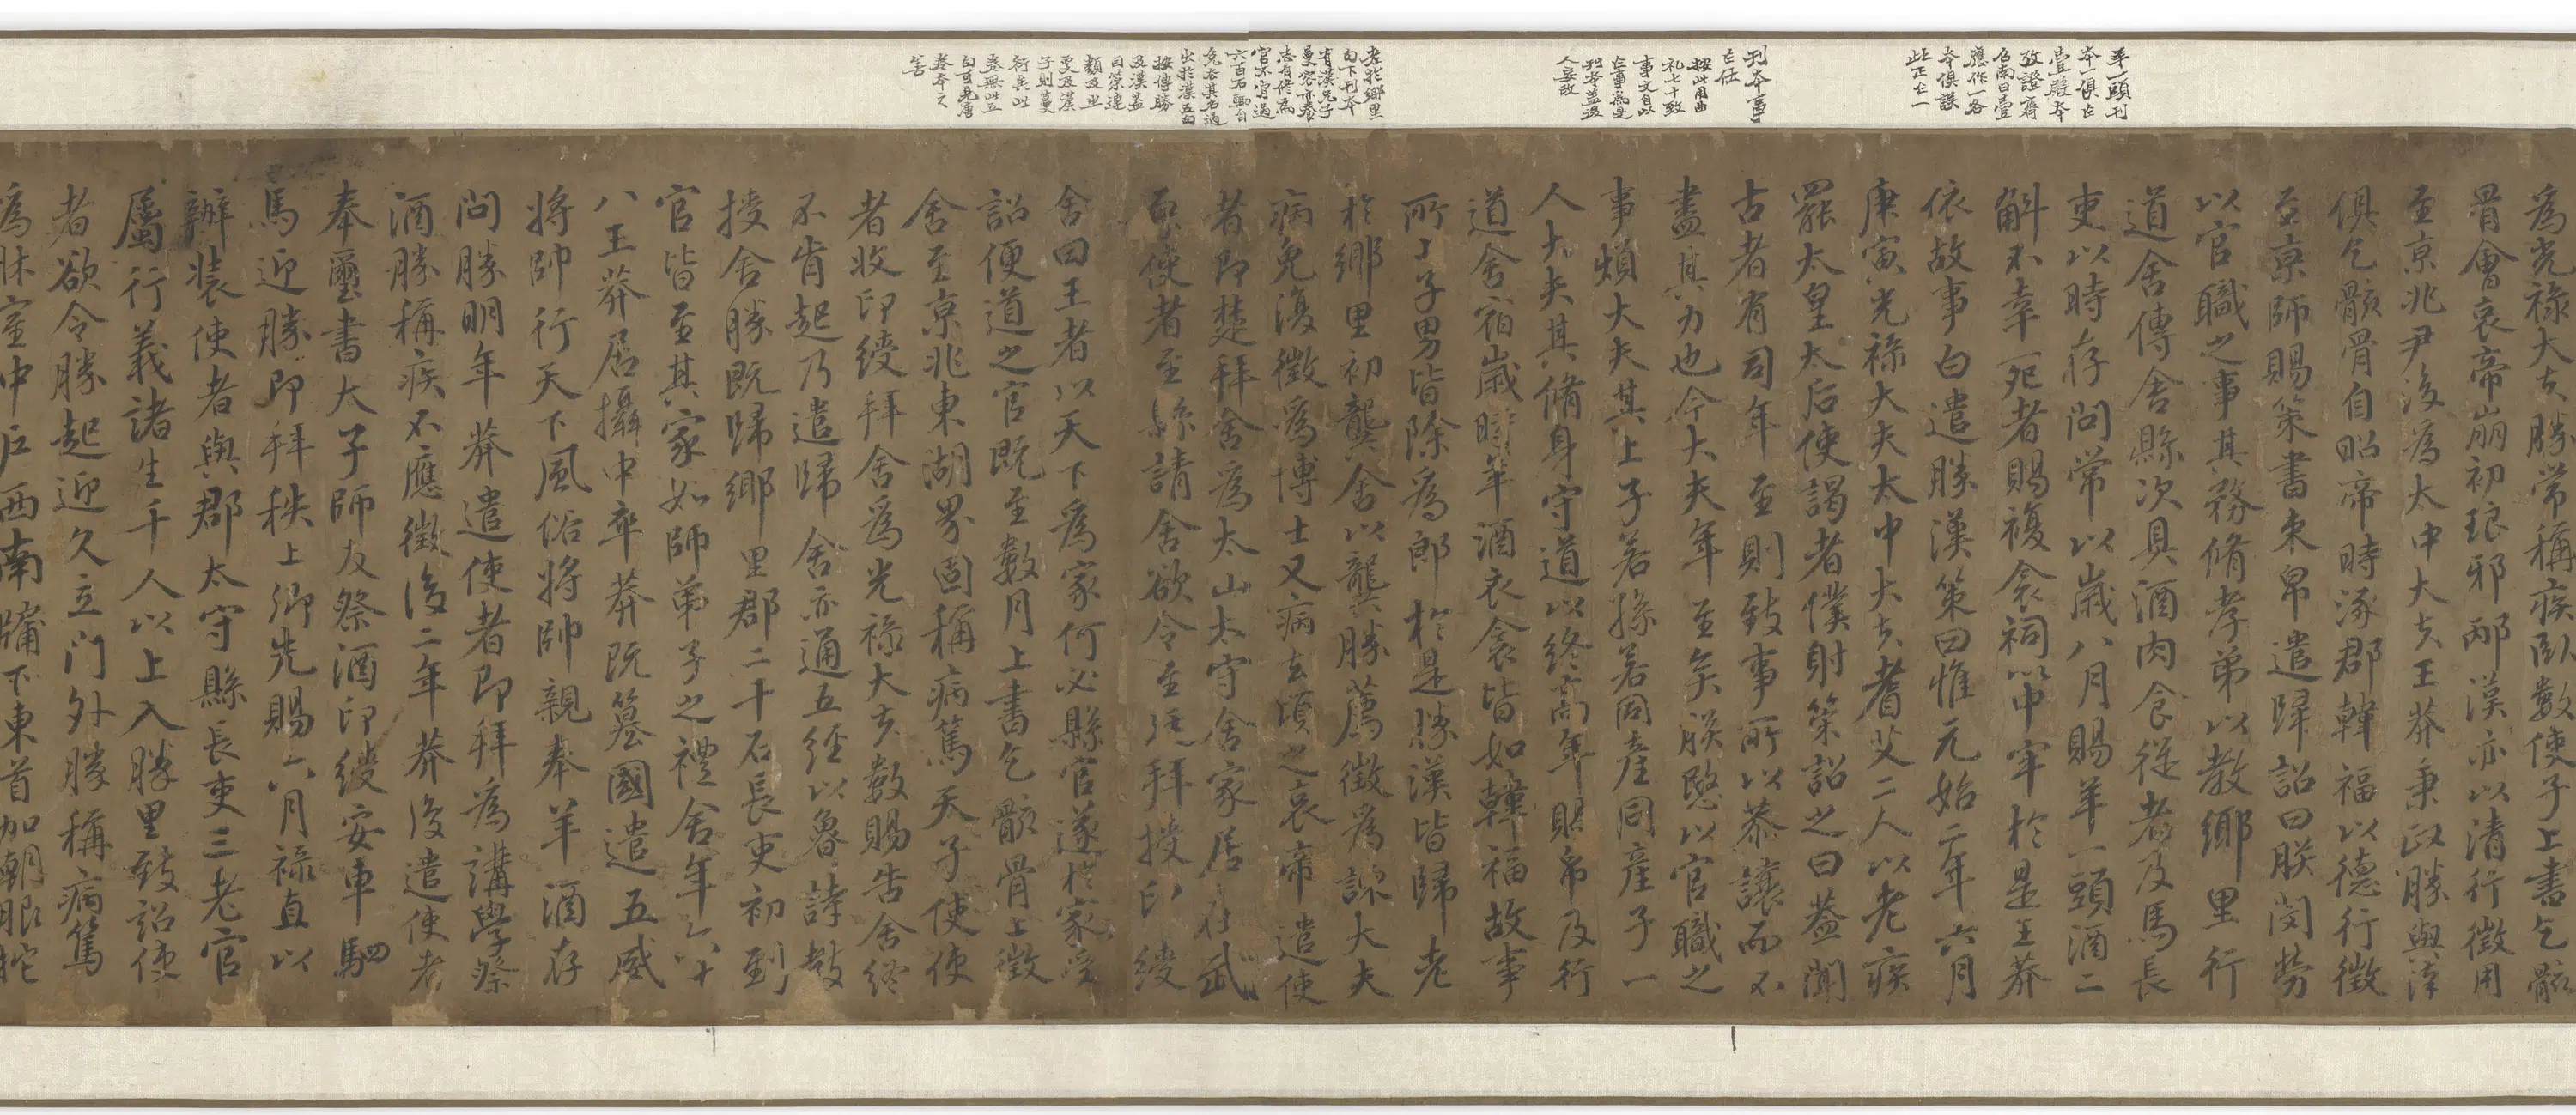 羊一頭刊
本一俱亡
壹殿本
攷證齊
召南曰壹
應作一各
本俱誤
此正亡一
刊本事
亡任
按此用曲
礼七十致
事文自以
亡事為是
刊本盖後
人妄改
老於鄉里
句下刊本
有漢兄子
曼容亦養
志自修為
官不肯過
六百石輒自
免去其名過
出於漢五句
按傳勝
及漢盖
因榮連
類及
更及漢
子則蔓
衍矣此
卷無此五
句可見唐
卷本之
善
為光祿大夫勝常稱疾臥數使子上書乞骸
骨會哀帝崩初琅邪邴漢亦以清行徵用
至京兆尹後為太中大夫王莽秉政勝與漢
俱乞骸骨自昭帝時涿郡韓福以德行徵
至京師賜策書束帛遣歸詔曰朕閔勞
以官職之事其務脩孝弟以教鄉里行
道舍傳舍縣次具酒肉食從者及馬長
吏以時存問常以歲八月賜羊一頭酒二
斛不幸死者賜複衾祠以中牢於是王莽
依故事白遣勝漢策曰惟元始二年六月
庚寅光祿大夫太中大夫耆艾二人以老疾
罷太皇太后使謁者僕射策詔之曰蓋聞
古者有司年至則致事所以恭讓而不
盡其力也今大夫年至矣朕愍以官職之
事煩大夫其上子若孫若同產同產子一
人大夫其脩身守道以終高年賜帛及行
道舍宿歲時羊酒衣衾皆如韓福故事
所上子男皆除為郎於是勝漢皆歸老
於鄉里初龔舍以龔勝薦徵為諫大夫
病免復徵為博士又病去頃之哀帝遣使
者即楚拜舍為太山太守舍家居在武
原使者至縣請舍欲令至廷拜授印綬
舍曰王者以天下為家何必縣官遂於家受
詔便道之官既至數月上書乞骸骨上徵
舍至京兆東湖界固稱病篤天子使使
者收印綬拜舍為光祿大夫數賜告舍終
不肯起乃遣歸舍亦通五經以魯詩教
授舍勝既歸鄉里郡二千石長吏初到
官皆至其家如師弟子之禮舍年六十
八王莽居攝中卒莽既篡國遣五威
將帥行天下風俗將帥親奉羊酒存
問勝明年莽遣使者即拜為講學祭
酒勝稱疾不應徵後二年莽復遣使者
奉璽書大子師友祭酒印綬安車駟
馬迎勝即拜秩上卿先賜六月祿直以
辦裝使者與郡太守縣長吏三老官
屬行義諸生千人以上入勝里致詔使
者欲令勝起迎久立門外勝稱病篤
為牀室中戶西南牖下東首加朝服拕